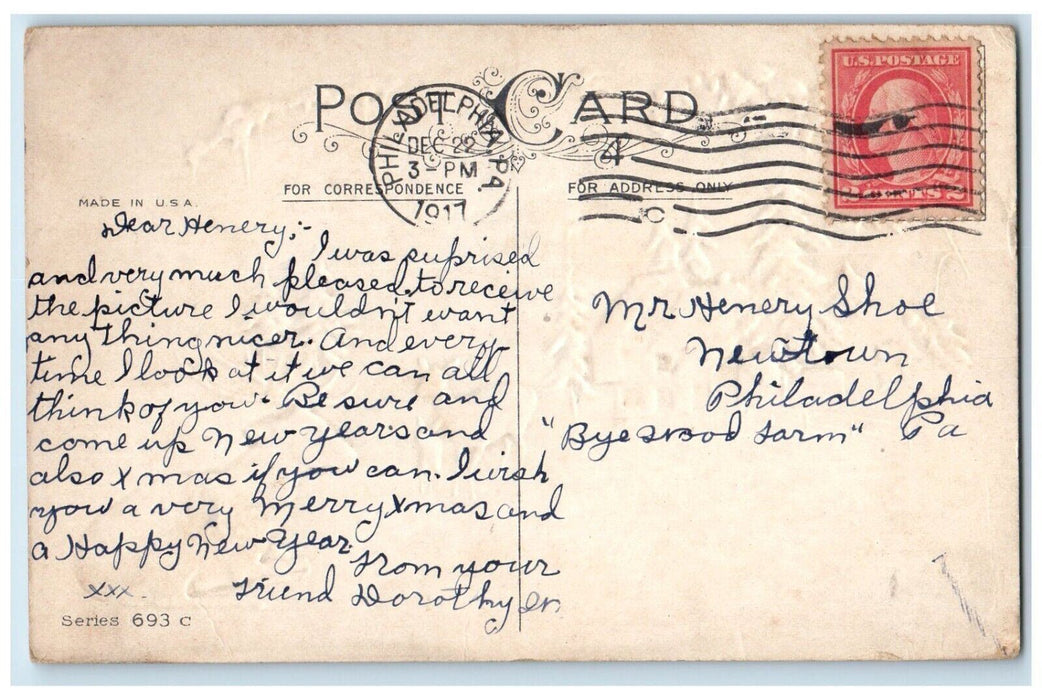 POST CARD
PHILADELPHIA, PA.
DEC 22
3-PM
1917
4
U.S. POSTAGE
2 CENTS 2
FOR CORRESPONDENCE
FOR ADDRESS ONLY
MADE IN U.S.A.
Dear Henery;-
I was suprised
and very much pleased to receive
the picture I wouldn't want
any thing nicer. And every
time I look at it we can all
think of you. Be sure and
come up New Years and
also Xmas if you can. I wish
you a very Merry Xmas and
a Happy New Year.
From your
xxx.
Friend Dorothy
Series 693 C
Mr Henery Shoe
Newtown
Philadelphia
Pa